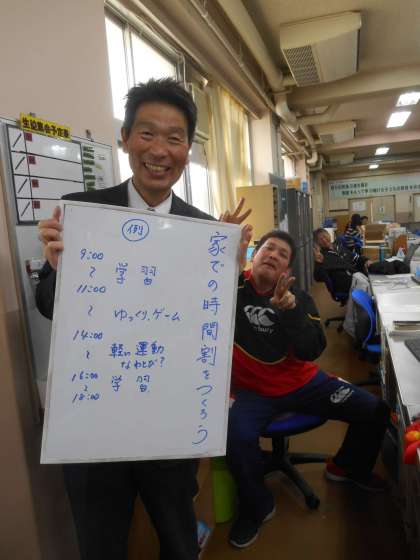 家での時間割をつくろう
例
9:00
〜
学習
11:00
〜
ゆっくり、ゲーム
14:00
〜
軽い運動
なわとび?
16:00
〜
学習
18:00
canterbury